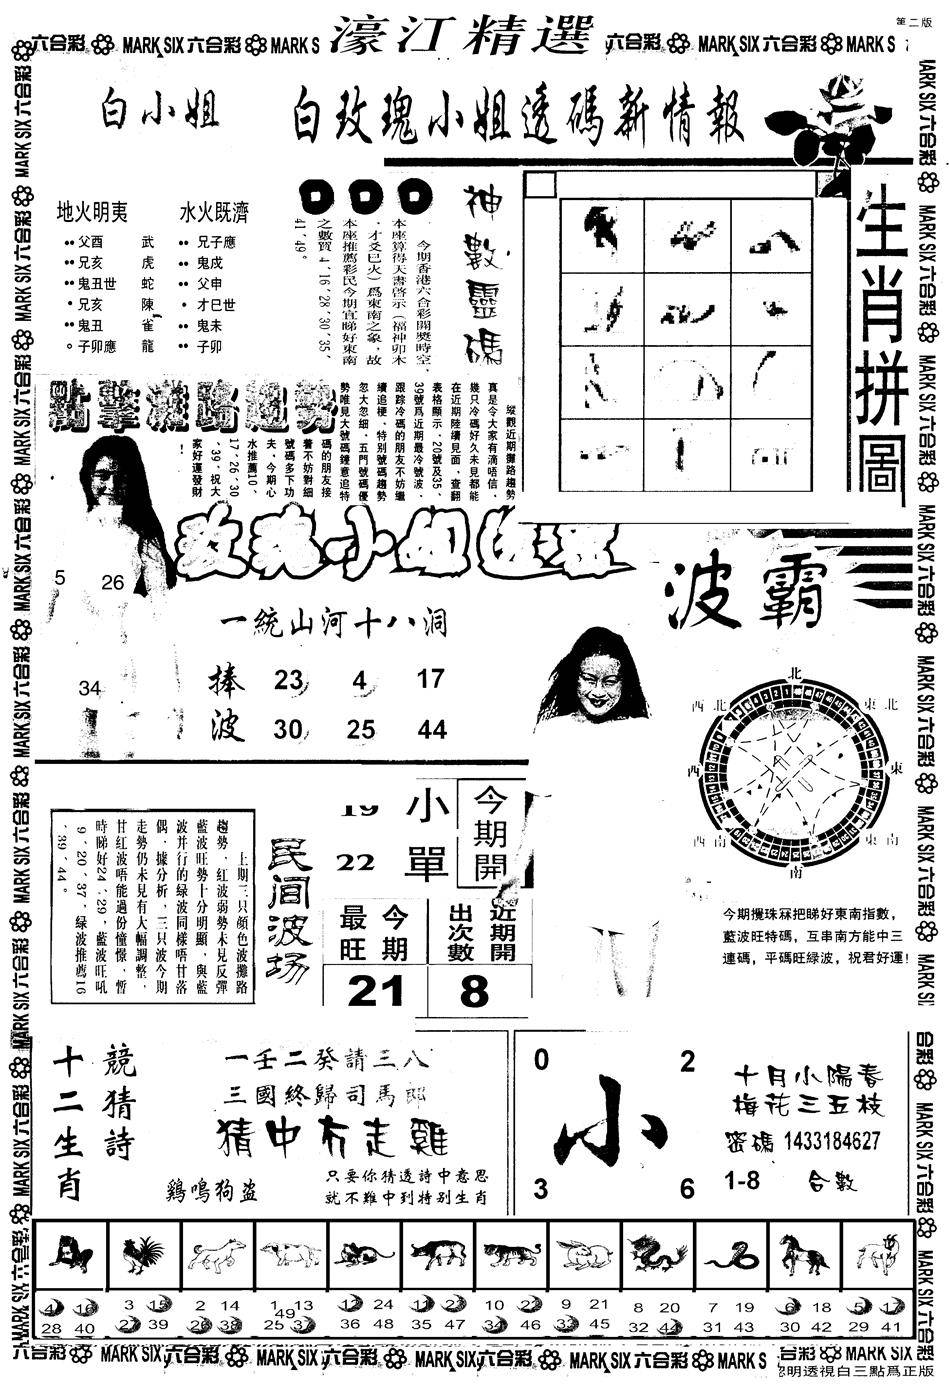 第二版
六合彩 MARK SIX 六合彩 MARK S 濠江精選 六合彩 MARK SIX 六合彩 MARK S
白小姐 白玫瑰小姐透碼新情報
地火明夷 水火既濟
父酉 武 兄子應
兄亥 虎 鬼戌
鬼丑世 蛇 父申
兄亥 陳 才巳世
鬼丑 雀 鬼未
子卯應 龍 子卯
神數靈碼
今期香港六合彩開獎時空,
本座算得天書啓示(福神卯木
,才爻巳火)爲東南之象,故
本座推薦彩民今期宜睇好東南
之數買4、16、28、30、35、
41、49。
生肖拼圖
點擊攤路趨勢
縱觀近期攤路趨勢
真是令大家有滴唔信,
幾只冷碼好久未見都能
在近期陸續見面、查翻
表格顯示、20號及35、
39號爲近期最冷號波、
跟踪冷碼的朋友不妨繼
續追梗、特別號碼趨勢
忽大忽細、五門號碼優
勢唯見大號碼鍾意追特
碼的朋友接
着不妨對細
號碼多下功
夫、今期心
水推薦10、
17、26、30
、39、祝大
家好運發財
!
玫瑰小姐
5 26
34
一統山河十八洞
捧波
23 4 17
30 25 44
波霸
北
西北 東北
西 東
西南 東南
南
今期攪珠冧把睇好東南指數,
藍波旺特碼,互串南方能中三
連碼,平碼旺緑波,祝君好運!
民间波场
上期三只顔色波攤路
趨勢、紅波弱勢未見反彈
藍波旺勢十分明顯、與藍
波并行的绿波同樣唔甘落
偶、據分析、三只波今期
走勢仍未見有大幅調整、
甘紅波唔能過份憧憬、暫
時睇好24、29、藍波旺吼
9、20、37、绿波推薦16
、39、44。
19 小 今期開
22 單
今期最旺 近期開出次數
21 8
十二生肖
競猜詩
一壬二癸請三八
三國終歸司馬郎
猜中冇走雞
鷄鳴狗盗
只要你猜透詩中意思
就不難中到特别生肖
0 2
小
3 6
十月小陽春
梅花三五枝
密碼 1433184627
1-8 合數
4 16 3 15 2 14 1 13 12 24 11 23 10 22 9 21 8 20 7 19 6 18 5 17
49
28 40 27 39 26 38 25 37 36 48 35 47 34 46 33 45 32 44 31 43 30 42 29 41
六合彩 MARK SIX 六合彩 MARK SIX 六合彩 MARK SIX 六合彩 MARK SIX 六合彩 MARK S 六合彩 MARK SIX 六合彩
明透視白三點爲正版